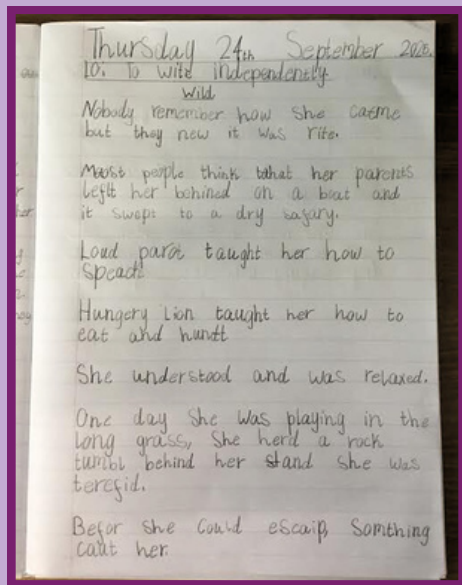 Thursday 24th September 2020.
IO: To write independently
Wild
Nobody remember how she caeme
but they new it was rite.
Moost people think tahat her parents
leftt her behined on a boat and
it swept to a dry safary.
Loud parot taught her how to
speach
Hungery Lion taught her how to
eat and huntt
She understood and was relaxed.
One day she was playing in the
long grass, She herd a rock
tumbl behind her stand she was
terefid.
Befor she could escaip, Somthing
caut her.